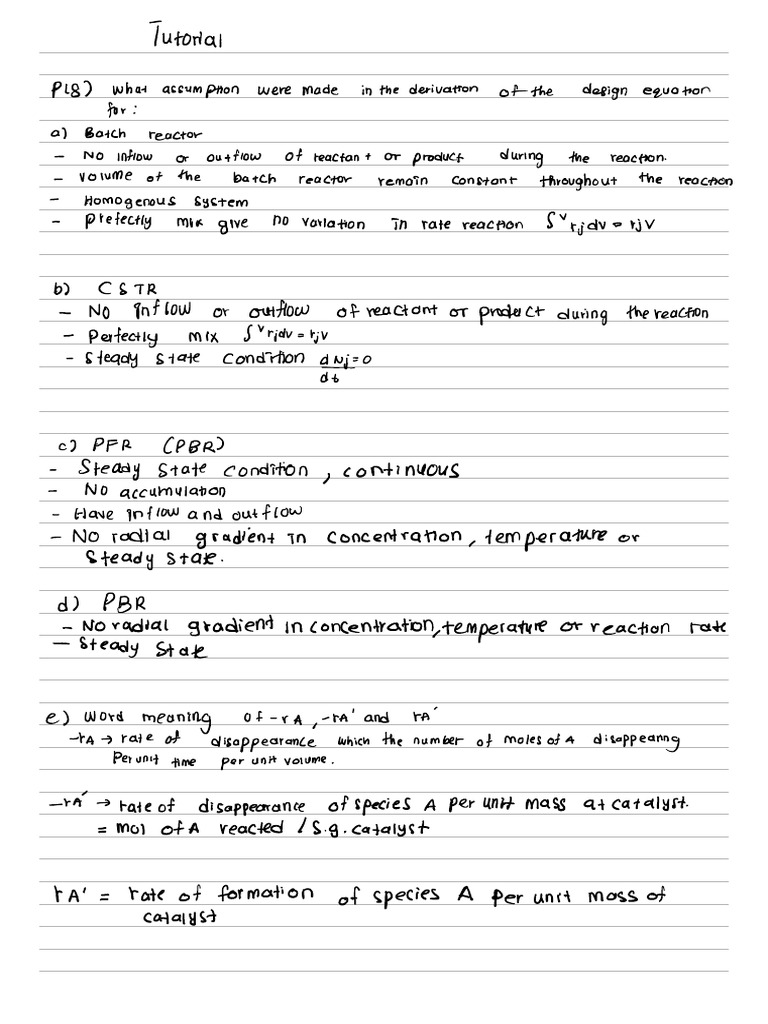 Tutorial
P18) What assumption were made in the derivation of the design equation
for:
a) Batch reactor
- No inflow or outflow of reactant or product during the reaction.
- volume of the batch reactor remain constant throughout the reaction
- Homogenous system
- Prefectly mix give no variation in rate reaction ∫ᵛ rjdv = rjV
b) CSTR
- No inflow or outflow of reactant or product during the reaction
- Perfectly mix ∫ᵛ rjdv = rjV
- Steady state condition dNj/dt = 0
c) PFR (PBR)
- Steady state condition, continuous
- No accumulation
- Have inflow and outflow
- No radial gradient in concentration, temperature or
steady state.
d) PBR
- No radial gradient in concentration, temperature or reaction rate
- Steady state
e) Word meaning of -rA, -rA' and rA'
-rA → rate of disappearance which the number of moles of A disappearing
Per unit time per unit volume.
-rA' → rate of disappearance of species A per unit mass at catalyst.
= mol of A reacted / s.g. catalyst
rA' = rate of formation of species A per unit mass of
catalyst